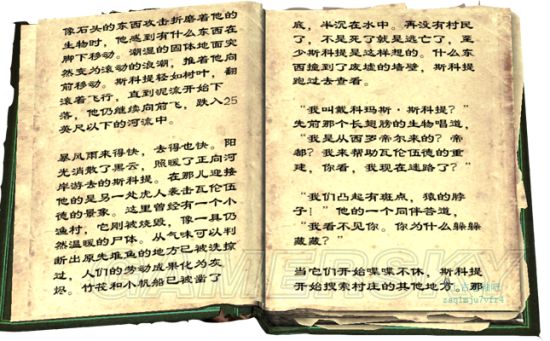 像石头的东西攻击折磨着他的
生物时，他感到有什么东西在
脚下移动。潮湿的固体地面突
然变为滚动的浪潮，推着他向
前移动。斯科提轻如树叶，翻
滚着飞行，直到泥流开始下
落，他仍继续向前飞，跌入25
英尺以下的河流中。
暴风雨来得快，去得也快。阳
光消散了黑云，照暖了正向河
岸游去的斯科提。在那儿迎接
他的是另一处虎人袭击瓦伦伍
德的景象。这里曾经有一个小
渔村，它刚被烧毁，像一具仍
然温暖的尸体。从气味可以判
断出原先堆鱼的地方已被洗掠
过，人们的劳动成果化为灰
烬。竹花和小帆船已被凿了
底，半沉在水中。再没有村民
了，不是死了就是逃亡了，至
少斯科提是这样想的。什么东
西撞到了废墟的墙壁，斯科提
跑过去查看。
“我叫戴科玛斯·斯科提？”
先前那个长翅膀的生物唱道，
“我是从西罗帝尔来的？帝
都？我来帮助瓦伦伍德的重
建，你看，我现在迷路了？”
“我们凸起有斑点，猿的脖
子！”他的一个同伴答道，
“我看不见你。你为什么躲躲
藏藏？”
当它们开始喋喋不休，斯科提
开始搜索村庄的其他地方。那
GAMERSKY
zaqtmju7vfr4